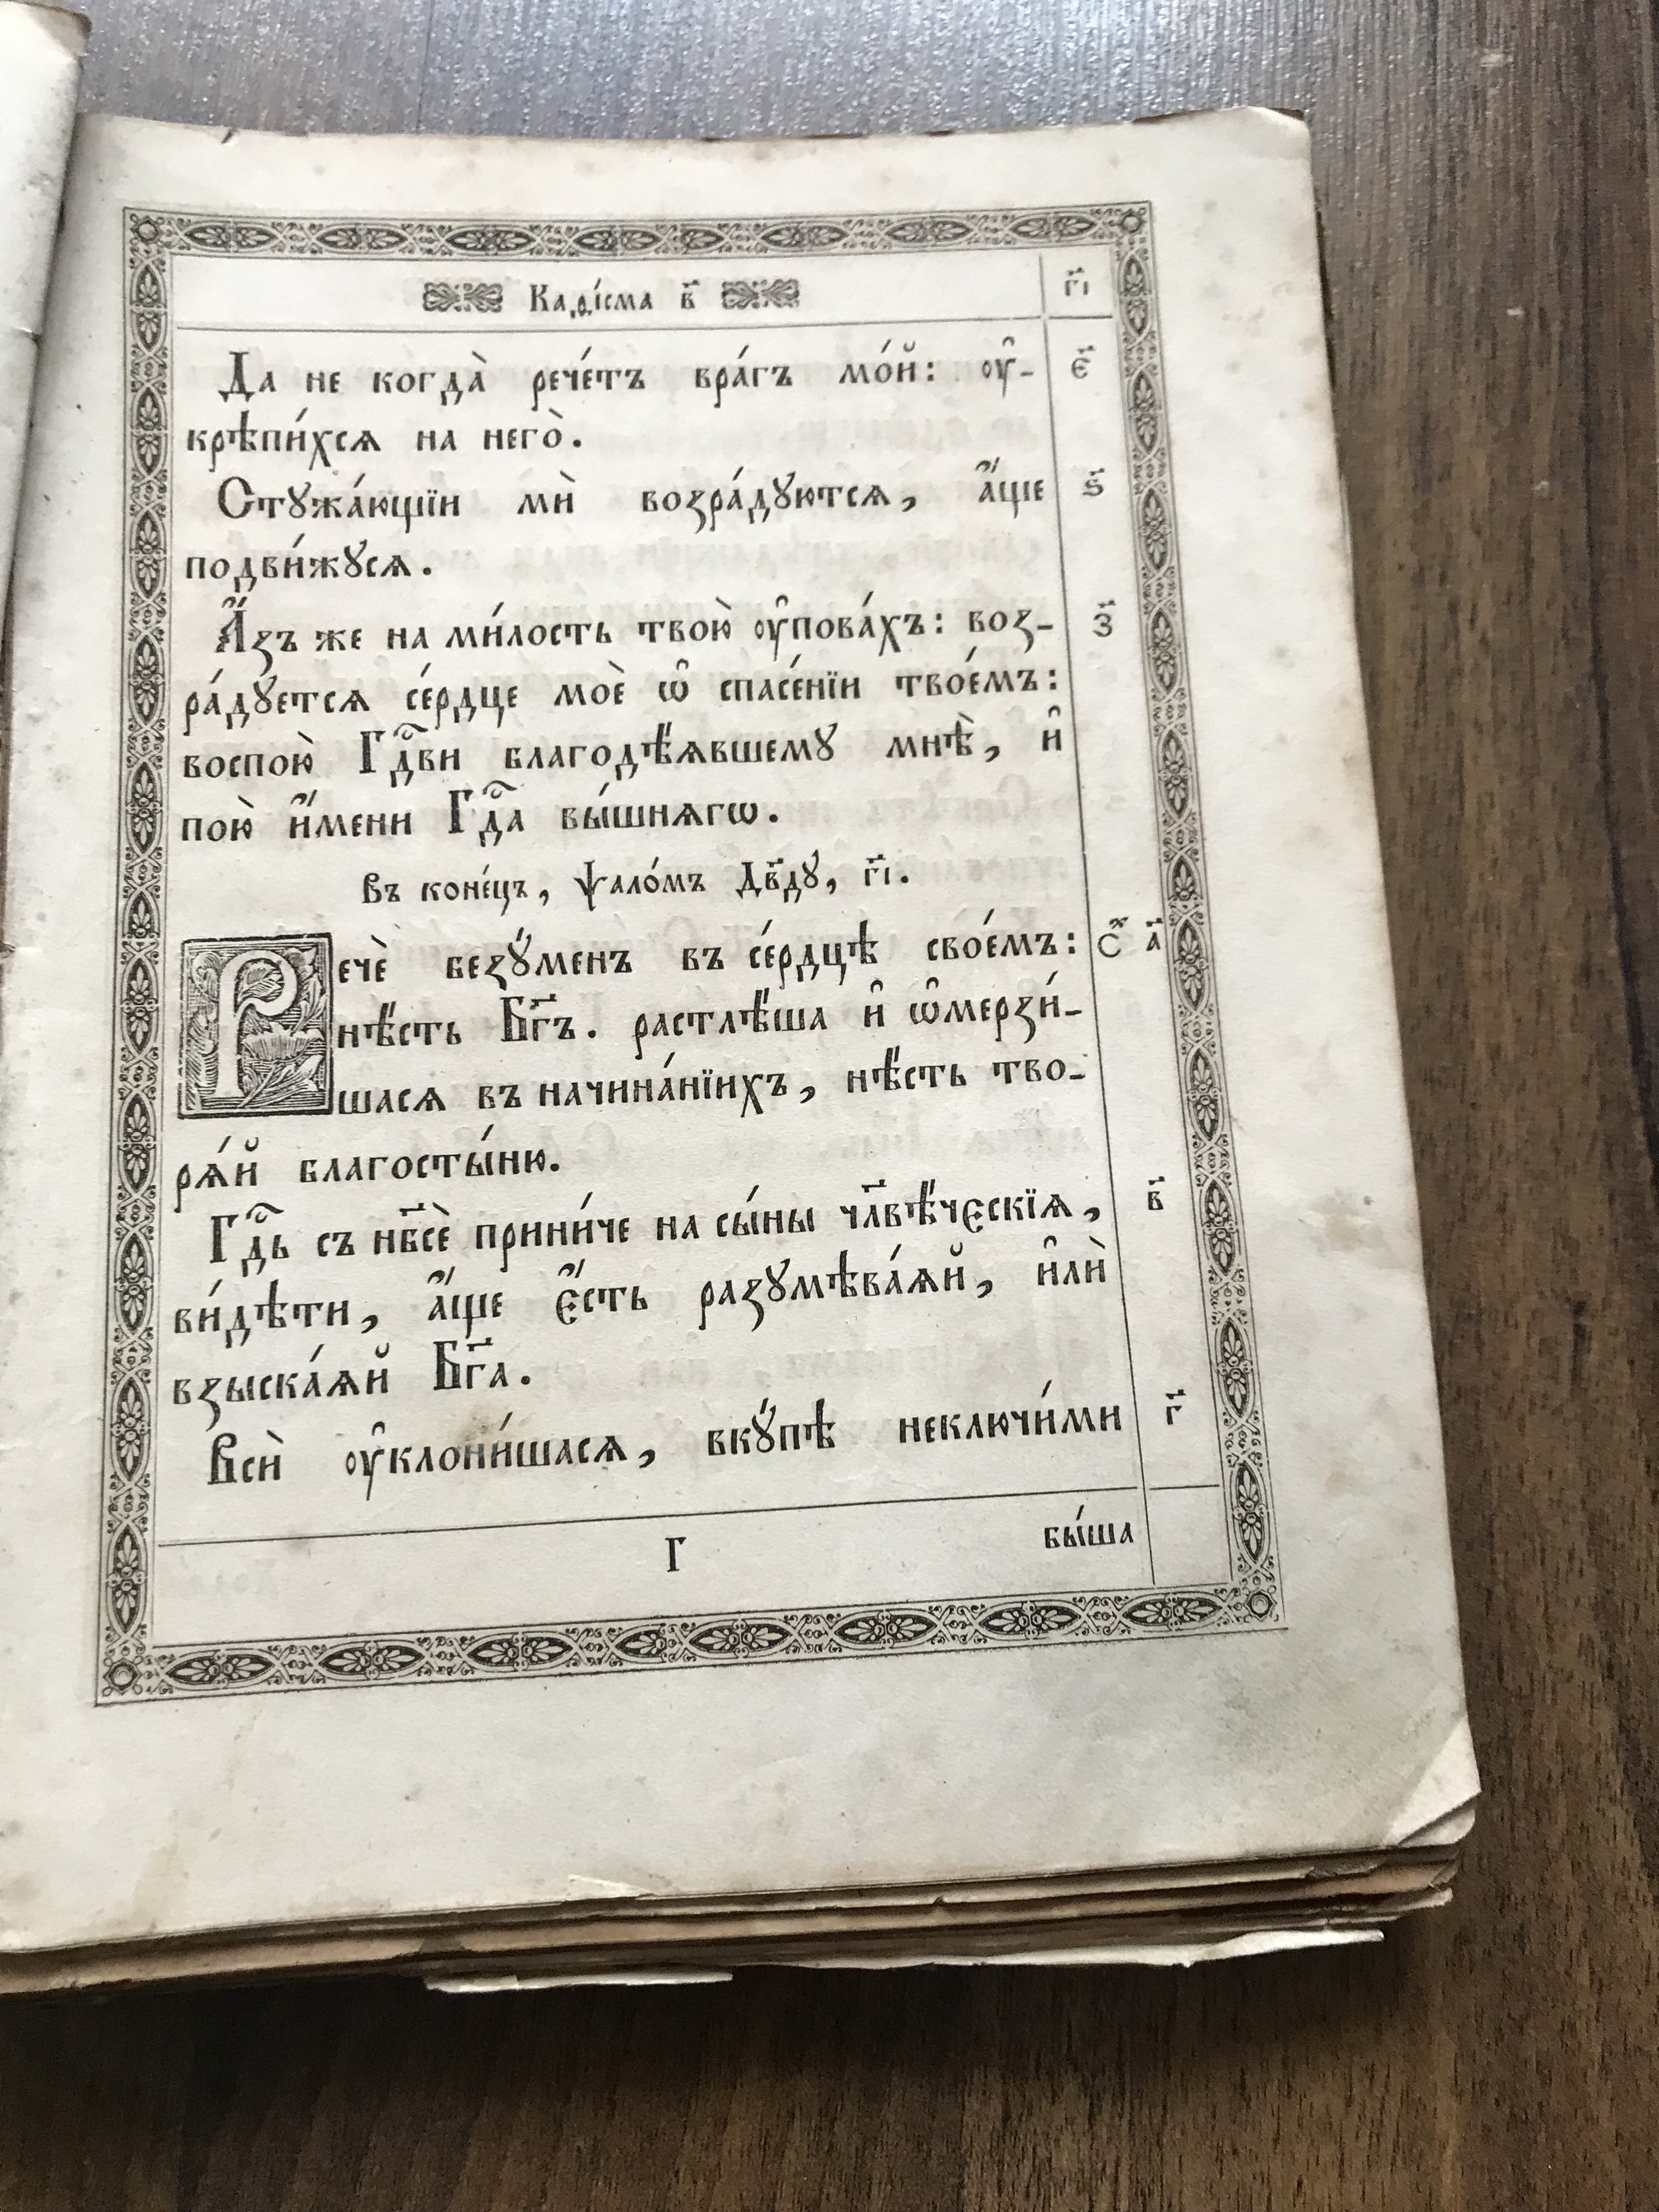 Каѳі́сма в҃ г҃і
Да не когда̀ рече́тъ вра́гъ мо́й: ᲂу҆- є҃
крѣпи́хсѧ на него̀.
Стꙋжа́ющїи мѝ возра́дꙋютсѧ, а҆́ще ѕ҃
подви́жꙋсѧ.
А҆́зъ же на ми́лость твою̀ ᲂу҆пова́хъ: воз- з҃
ра́дꙋетсѧ се́рдце моѐ ѡ҆ спасе́нїи твое́мъ:
воспою̀ Гдⷭ҇ви благодѣ́ѧвшемꙋ мнѣ̀, и҆
пою̀ и҆́мени Гдⷭ҇а вы́шнѧгѡ.
Въ коне́цъ, ѱало́мъ Дв҃дꙋ, г҃і.
Речѐ безꙋ́менъ въ се́рдцѣ свое́мъ: Сⷯ а҃
нѣ́сть Бг҃ъ. растлѣ́ша и҆ ѡ҆мерзи́-
шасѧ въ начина́нїихъ, нѣ́сть тво-
рѧ́й благосты́ню.
Гдⷭ҇ь съ нб҃сѐ прини́че на сы́ны чл҃вѣ́чєскїѧ, в҃
ви́дѣти, а҆́ще є҆́сть разꙋмѣва́ѧй, и҆лѝ
взыска́ѧй Бг҃а.
Всѝ ᲂу҆клони́шасѧ, вкꙋ́пѣ неключи́ми г҃
Г бы́ша